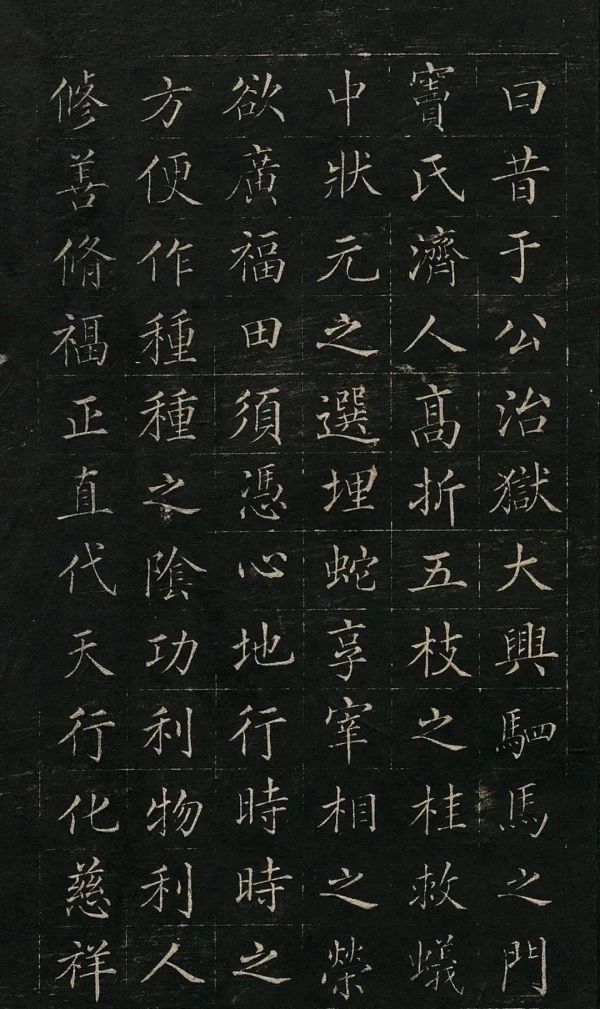 曰昔于公治獄大興駟馬之門
竇氏濟人髙折五枝之桂救蟻
中狀元之選埋蛇享宰相之榮
欲廣福田須憑心地行時時之
方便作種種之陰功利物利人
修善脩福正直代天行化慈祥